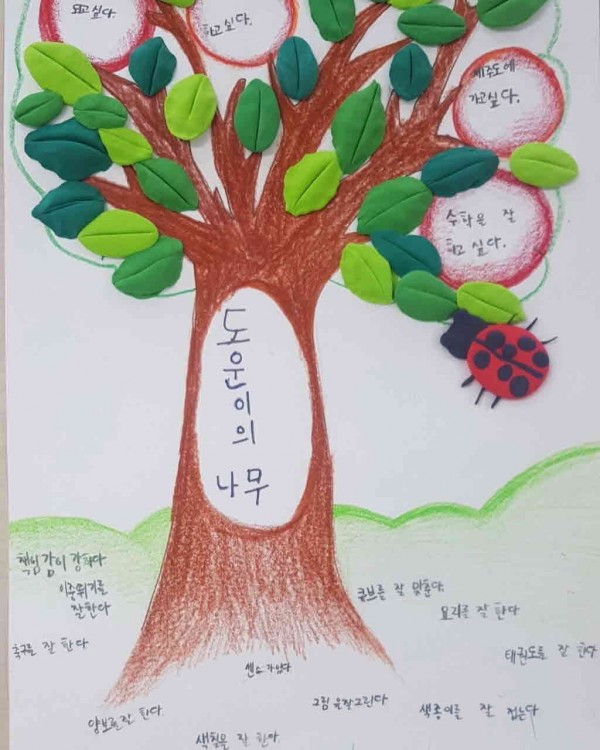 되고싶다.
하고싶다.
제주도에
가고싶다.
수학을 잘
하고 싶다.
도운이의
나무
책임감이 강하다
이줄뛰기를
잘한다
축구를 잘 한다
큐브를 잘 맞춘다.
요리를 잘 한다
태권도를 잘 한다
센스가있다
그림을잘그린다
색종이를 잘 접는다
양보를잘 한다.
색칠을 잘 한다.